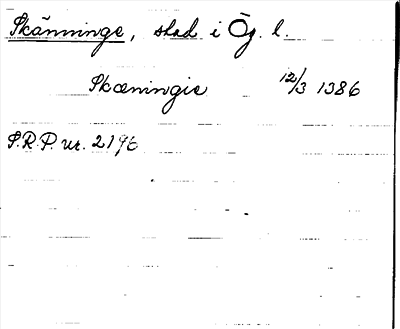 Skänninge, stad i Ög. l.
Skæningie 12/3 1386
S.R.P. nr. 2196